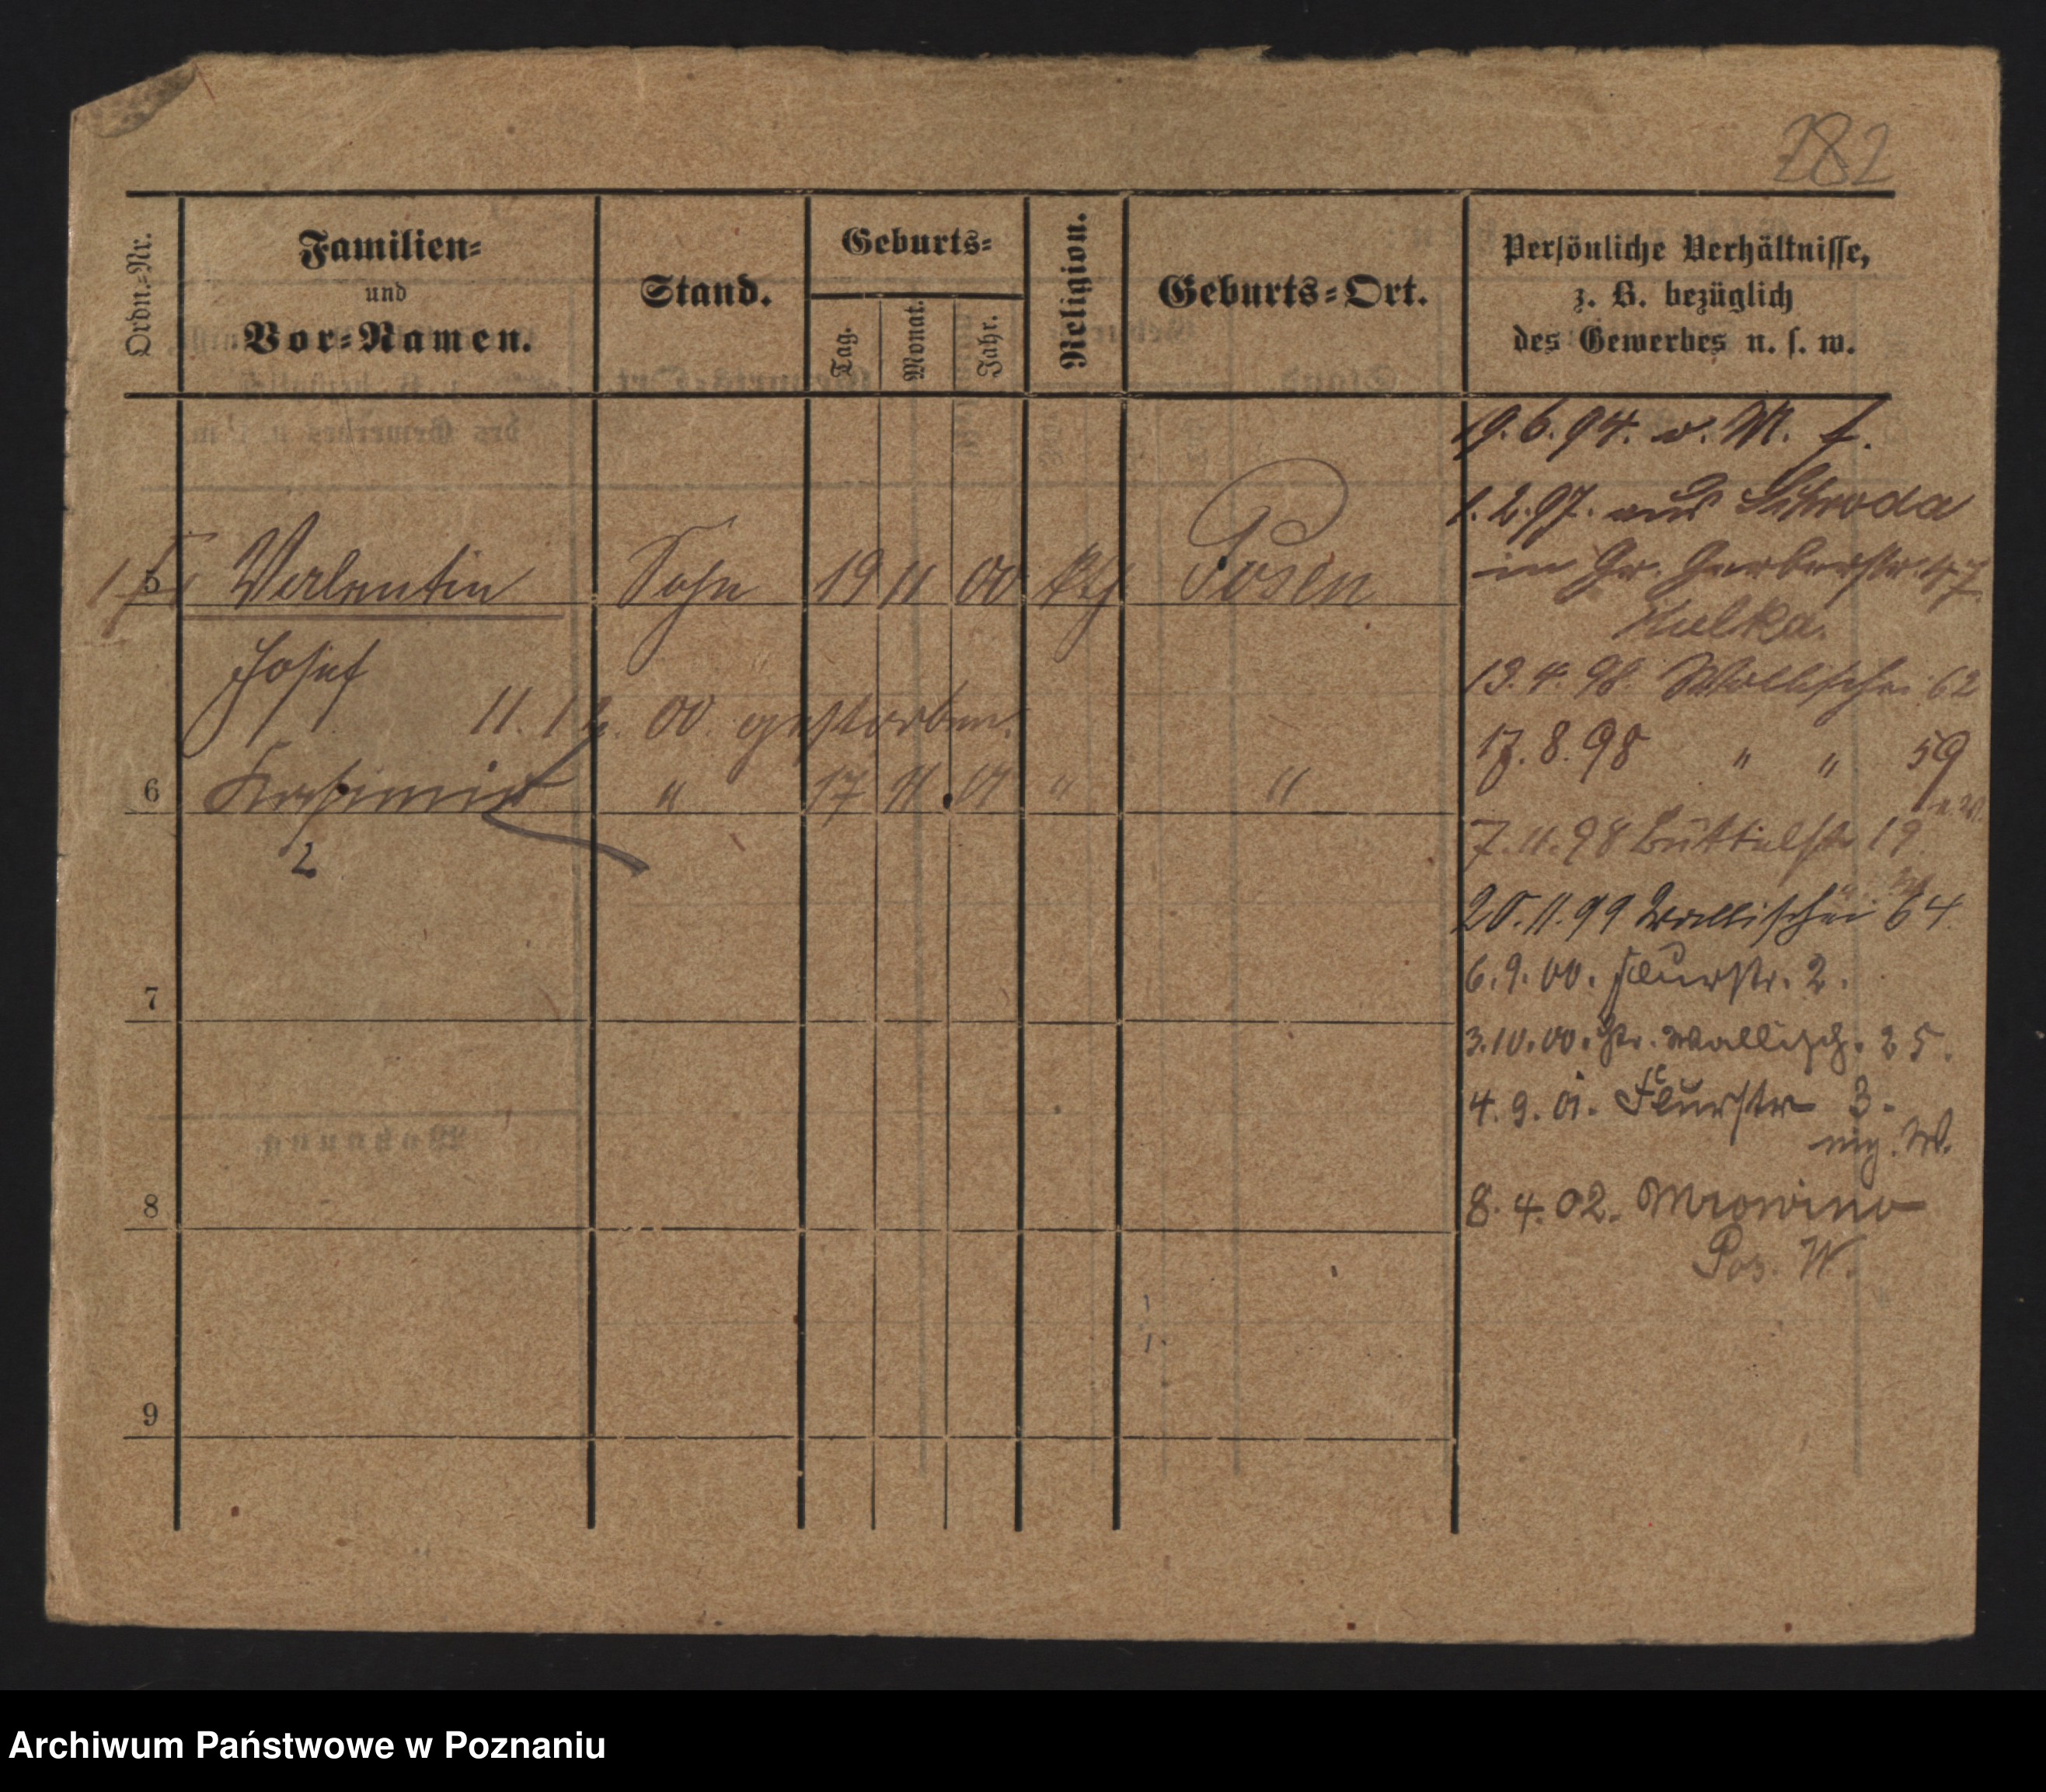 282
Ordn.-Nr.
Familien-
und
Vor-Namen.
Stand.
Geburts-
Tag.
Monat.
Jahr.
Religion.
Geburts-Ort.
Persönliche Verhältnisse,
z. B. bezüglich
des Gewerbes u. s. w.
19.6.94. v. M.
1.2.97. aus Schroda
in Gr. Gerberstr. 47
Kulka.
5 Valentin Sohn 19 11 00 kth Posen
Josef
11. 12. 00. gestorben.
6 Kasimir " 17 11 01 " "
2
13.4.98. Wallischei 62
17.8.98 " " 59
7.11.98 Büttelstr 19.
20.11.99 Wallischei 64
6.9.00. Flurstr. 2.
3.10.00. Gr. Wallisch. 25.
4.9.01. Flurstr 3.
8.4.02. Mrowino
Pos. W.
7
8
9
Wohnung
Archiwum Państwowe w Poznaniu